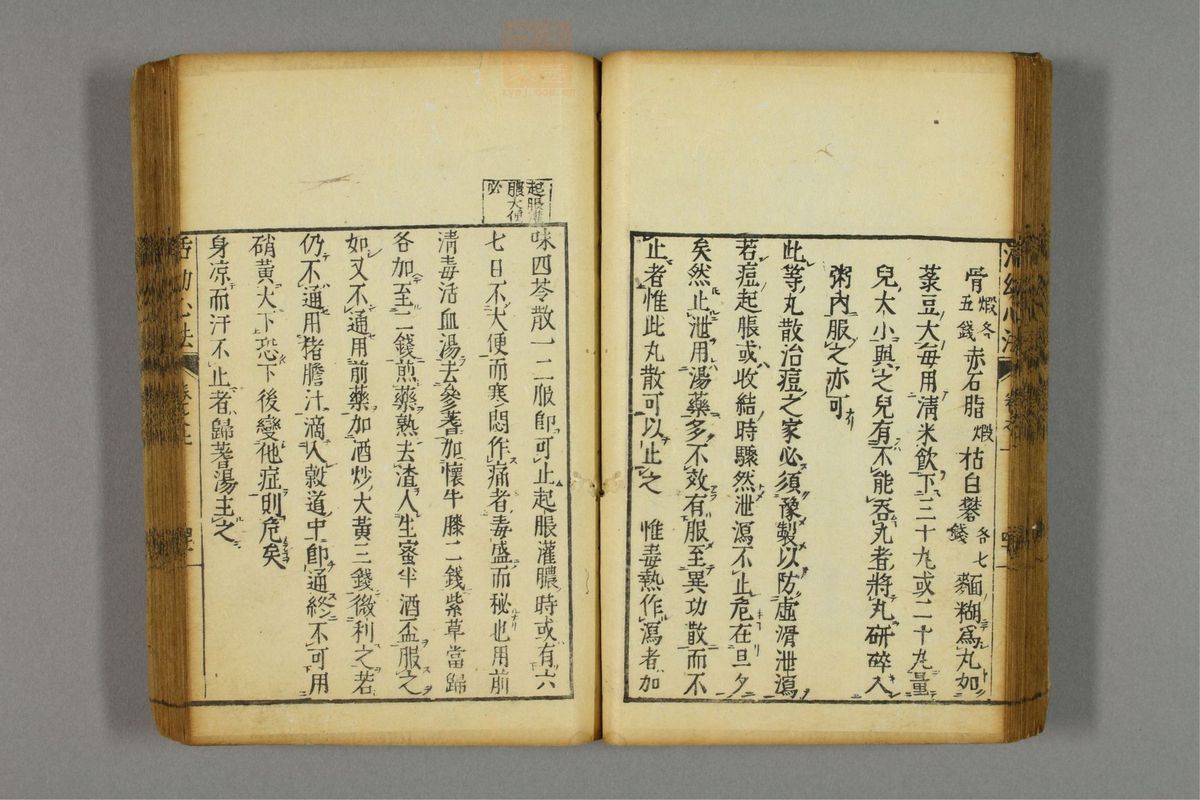 骨煅各五錢赤石脂煅枯白礬各七錢麵糊爲丸如
菉豆大每用淸米飮下三十丸或二十丸量
兒大小與之兒有不能吞丸者將丸研碎入
粥內服之亦可
此等丸散治痘之家必須豫製以防虛滑泄瀉
若痘起脹或收結時驟然泄瀉不止危在旦夕
矣然止泄用湯藥多不效有服至異功散而不
止者惟此丸散可以止之 惟毒熱作瀉者加
起脹灌
膿大便
必
味四苓散一二服卽可止起脹灌膿時或有六
七日不大便而寒悶作痛者毒盛而秘也用前
淸毒活血湯去參蓍加懷牛膝二錢紫草當歸
各加至二錢煎藥熟去渣入生蜜半酒盃服之
如又不通用前藥加酒炒大黃三錢微利之若
仍不通用猪膽汁滴入穀道中卽通終不可用
硝黃大下恐下後變他症則危矣
身凉而汗不止者歸蓍湯主之
活幼心法